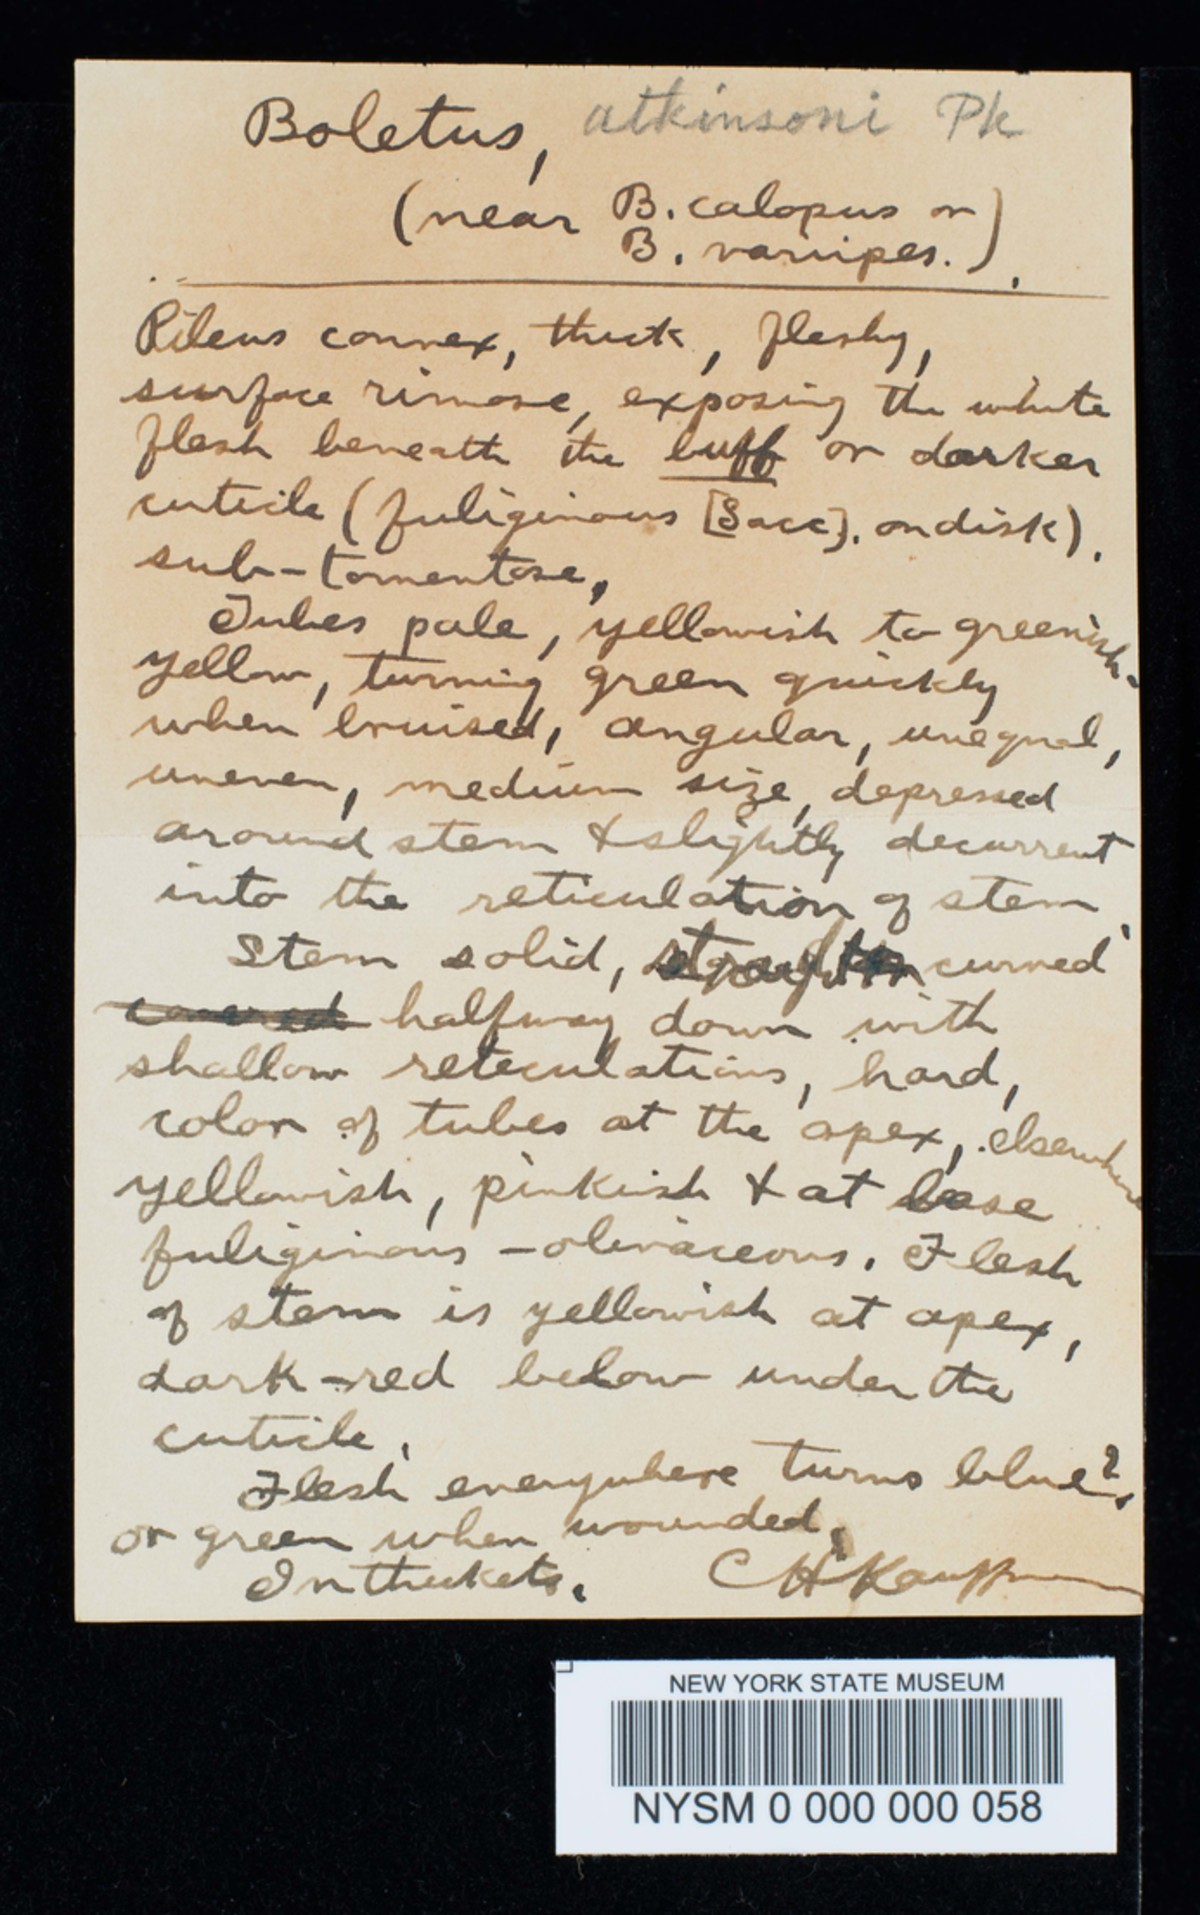 Boletus, atkinsoni Pk
(near B. calopus or
B. variipes.)
Pileus convex, thick, fleshy,
surface rimose, exposing the white
flesh beneath the buff or darker
cuticle (fuliginous [Sacc]. on disk).
sub-tomentose,
Tubes pale, yellowish to greenish-
yellow, turning green quickly
when bruised, angular, unequal,
uneven, medium size, depressed
around stem & slightly decurrent
into the reticulation of stem.
Stem solid, curved
covered halfway down with
shallow reteculations, hard,
color of tubes at the apex, elsewhere
yellowish, pinkish & at base
fuliginous -olivaceous. Flesh
of stem is yellowish at apex,
dark-red below under the
cuticle.
Flesh everywhere turns blue?
or green when wounded.
In thickets. C H Kauffman
NEW YORK STATE MUSEUM
NYSM 0 000 000 058